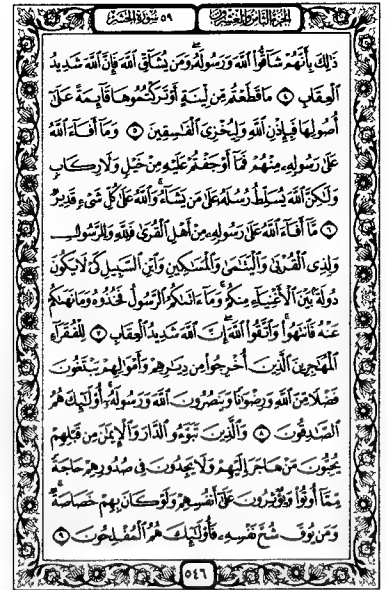 الجزء الثامن والعشرون
٥٩ سورة الحشر
ذَٰلِكَ بِأَنَّهُمْ شَآقُّوا۟ ٱللَّهَ وَرَسُولَهُۥ ۖ وَمَن يُشَآقِّ ٱللَّهَ فَإِنَّ ٱللَّهَ شَدِيدُ
ٱلْعِقَابِ ٤ مَا قَطَعْتُم مِّن لِّينَةٍ أَوْ تَرَكْتُمُوهَا قَآئِمَةً عَلَىٰٓ
أُصُولِهَا فَبِإِذْنِ ٱللَّهِ وَلِيُخْزِىَ ٱلْفَـٰسِقِينَ ٥ وَمَآ أَفَآءَ ٱللَّهُ
عَلَىٰ رَسُولِهِۦ مِنْهُمْ فَمَآ أَوْجَفْتُمْ عَلَيْهِ مِنْ خَيْلٍ وَلَا رِكَابٍ
وَلَـٰكِنَّ ٱللَّهَ يُسَلِّطُ رُسُلَهُۥ عَلَىٰ مَن يَشَآءُ ۚ وَٱللَّهُ عَلَىٰ كُلِّ شَىْءٍ قَدِيرٌ
٦ مَّآ أَفَآءَ ٱللَّهُ عَلَىٰ رَسُولِهِۦ مِنْ أَهْلِ ٱلْقُرَىٰ فَلِلَّهِ وَلِلرَّسُولِ
وَلِذِى ٱلْقُرْبَىٰ وَٱلْيَتَـٰمَىٰ وَٱلْمَسَـٰكِينِ وَٱبْنِ ٱلسَّبِيلِ كَىْ لَا يَكُونَ
دُولَةًۢ بَيْنَ ٱلْأَغْنِيَآءِ مِنكُمْ ۚ وَمَآ ءَاتَىٰكُمُ ٱلرَّسُولُ فَخُذُوهُ وَمَا نَهَىٰكُمْ
عَنْهُ فَٱنتَهُوا۟ ۚ وَٱتَّقُوا۟ ٱللَّهَ ۖ إِنَّ ٱللَّهَ شَدِيدُ ٱلْعِقَابِ ٧ لِلْفُقَرَآءِ
ٱلْمُهَـٰجِرِينَ ٱلَّذِينَ أُخْرِجُوا۟ مِن دِيَـٰرِهِمْ وَأَمْوَٰلِهِمْ يَبْتَغُونَ
فَضْلًا مِّنَ ٱللَّهِ وَرِضْوَٰنًا وَيَنصُرُونَ ٱللَّهَ وَرَسُولَهُۥٓ ۚ أُو۟لَـٰٓئِكَ هُمُ
ٱلصَّـٰدِقُونَ ٨ وَٱلَّذِينَ تَبَوَّءُو ٱلدَّارَ وَٱلْإِيمَـٰنَ مِن قَبْلِهِمْ
يُحِبُّونَ مَنْ هَاجَرَ إِلَيْهِمْ وَلَا يَجِدُونَ فِى صُدُورِهِمْ حَاجَةً
مِّمَّآ أُوتُوا۟ وَيُؤْثِرُونَ عَلَىٰٓ أَنفُسِهِمْ وَلَوْ كَانَ بِهِمْ خَصَاصَةٌ ۚ
وَمَن يُوقَ شُحَّ نَفْسِهِۦ فَأُو۟لَـٰٓئِكَ هُمُ ٱلْمُفْلِحُونَ ٩
٥٤٦